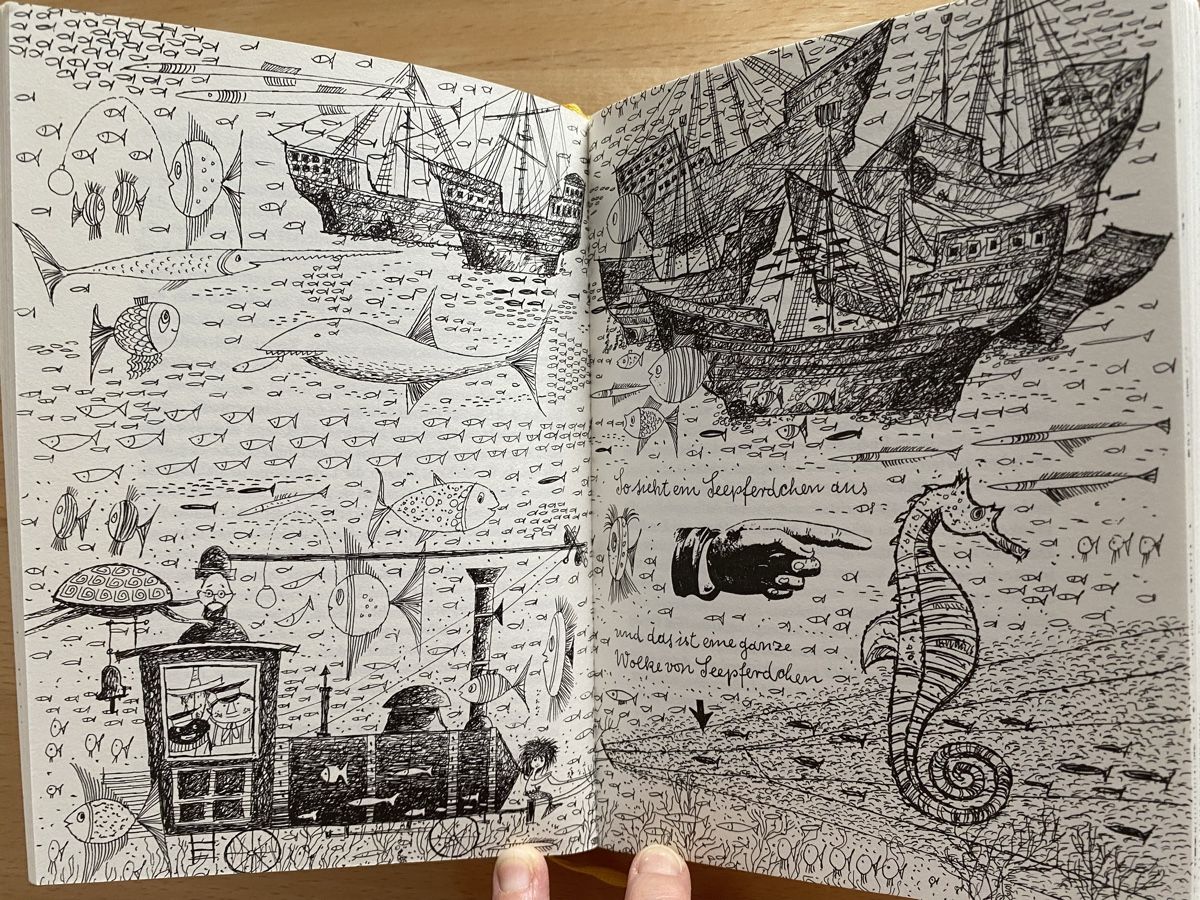 So sieht ein Seepferdchen aus
und das ist eine ganze
Wolke von Seepferdchen